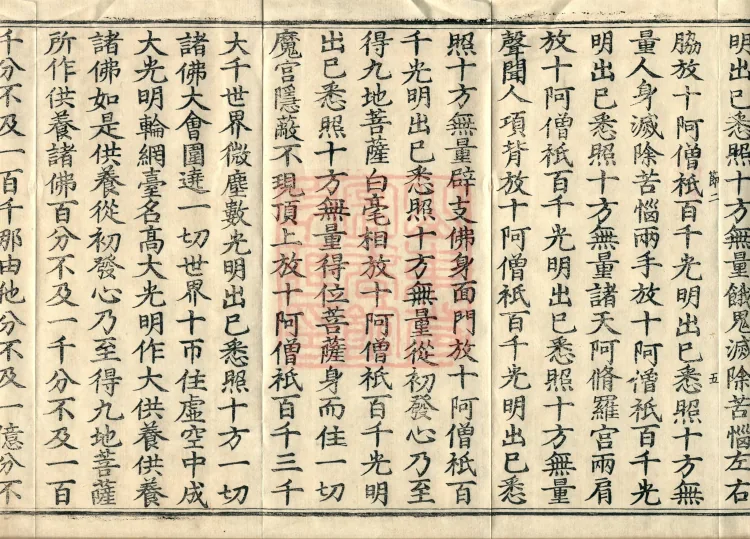 明出已悉照十方無量餓鬼滅除苦惱左右
脇放十阿僧祇百千光明出已悉照十方無
量人身滅除苦惱兩手放十阿僧祇百千光
明出已悉照十方無量諸天阿脩羅宮兩肩
放十阿僧祇百千光明出已悉照十方無量
聲聞人項背放十阿僧祇百千光明出已悉
照十方無量辟支佛身面門放十阿僧祇百
千光明出已悉照十方無量從初發心乃至
得九地菩薩白毫相放十阿僧祇百千光明
出已悉照十方無量得位菩薩身而住一切
魔宮隱蔽不現頂上放十阿僧祇百千三千
大千世界微塵數光明出已悉照十方一切
諸佛大會圍遶一切世界十帀住虛空中成
大光明輪網臺名髙大光明作大供養供養
諸佛如是供養從初發心乃至得九地菩薩
所作供養諸佛百分不及一千分不及一百
千分不及一百千那由他分不及一億分不
節二
五